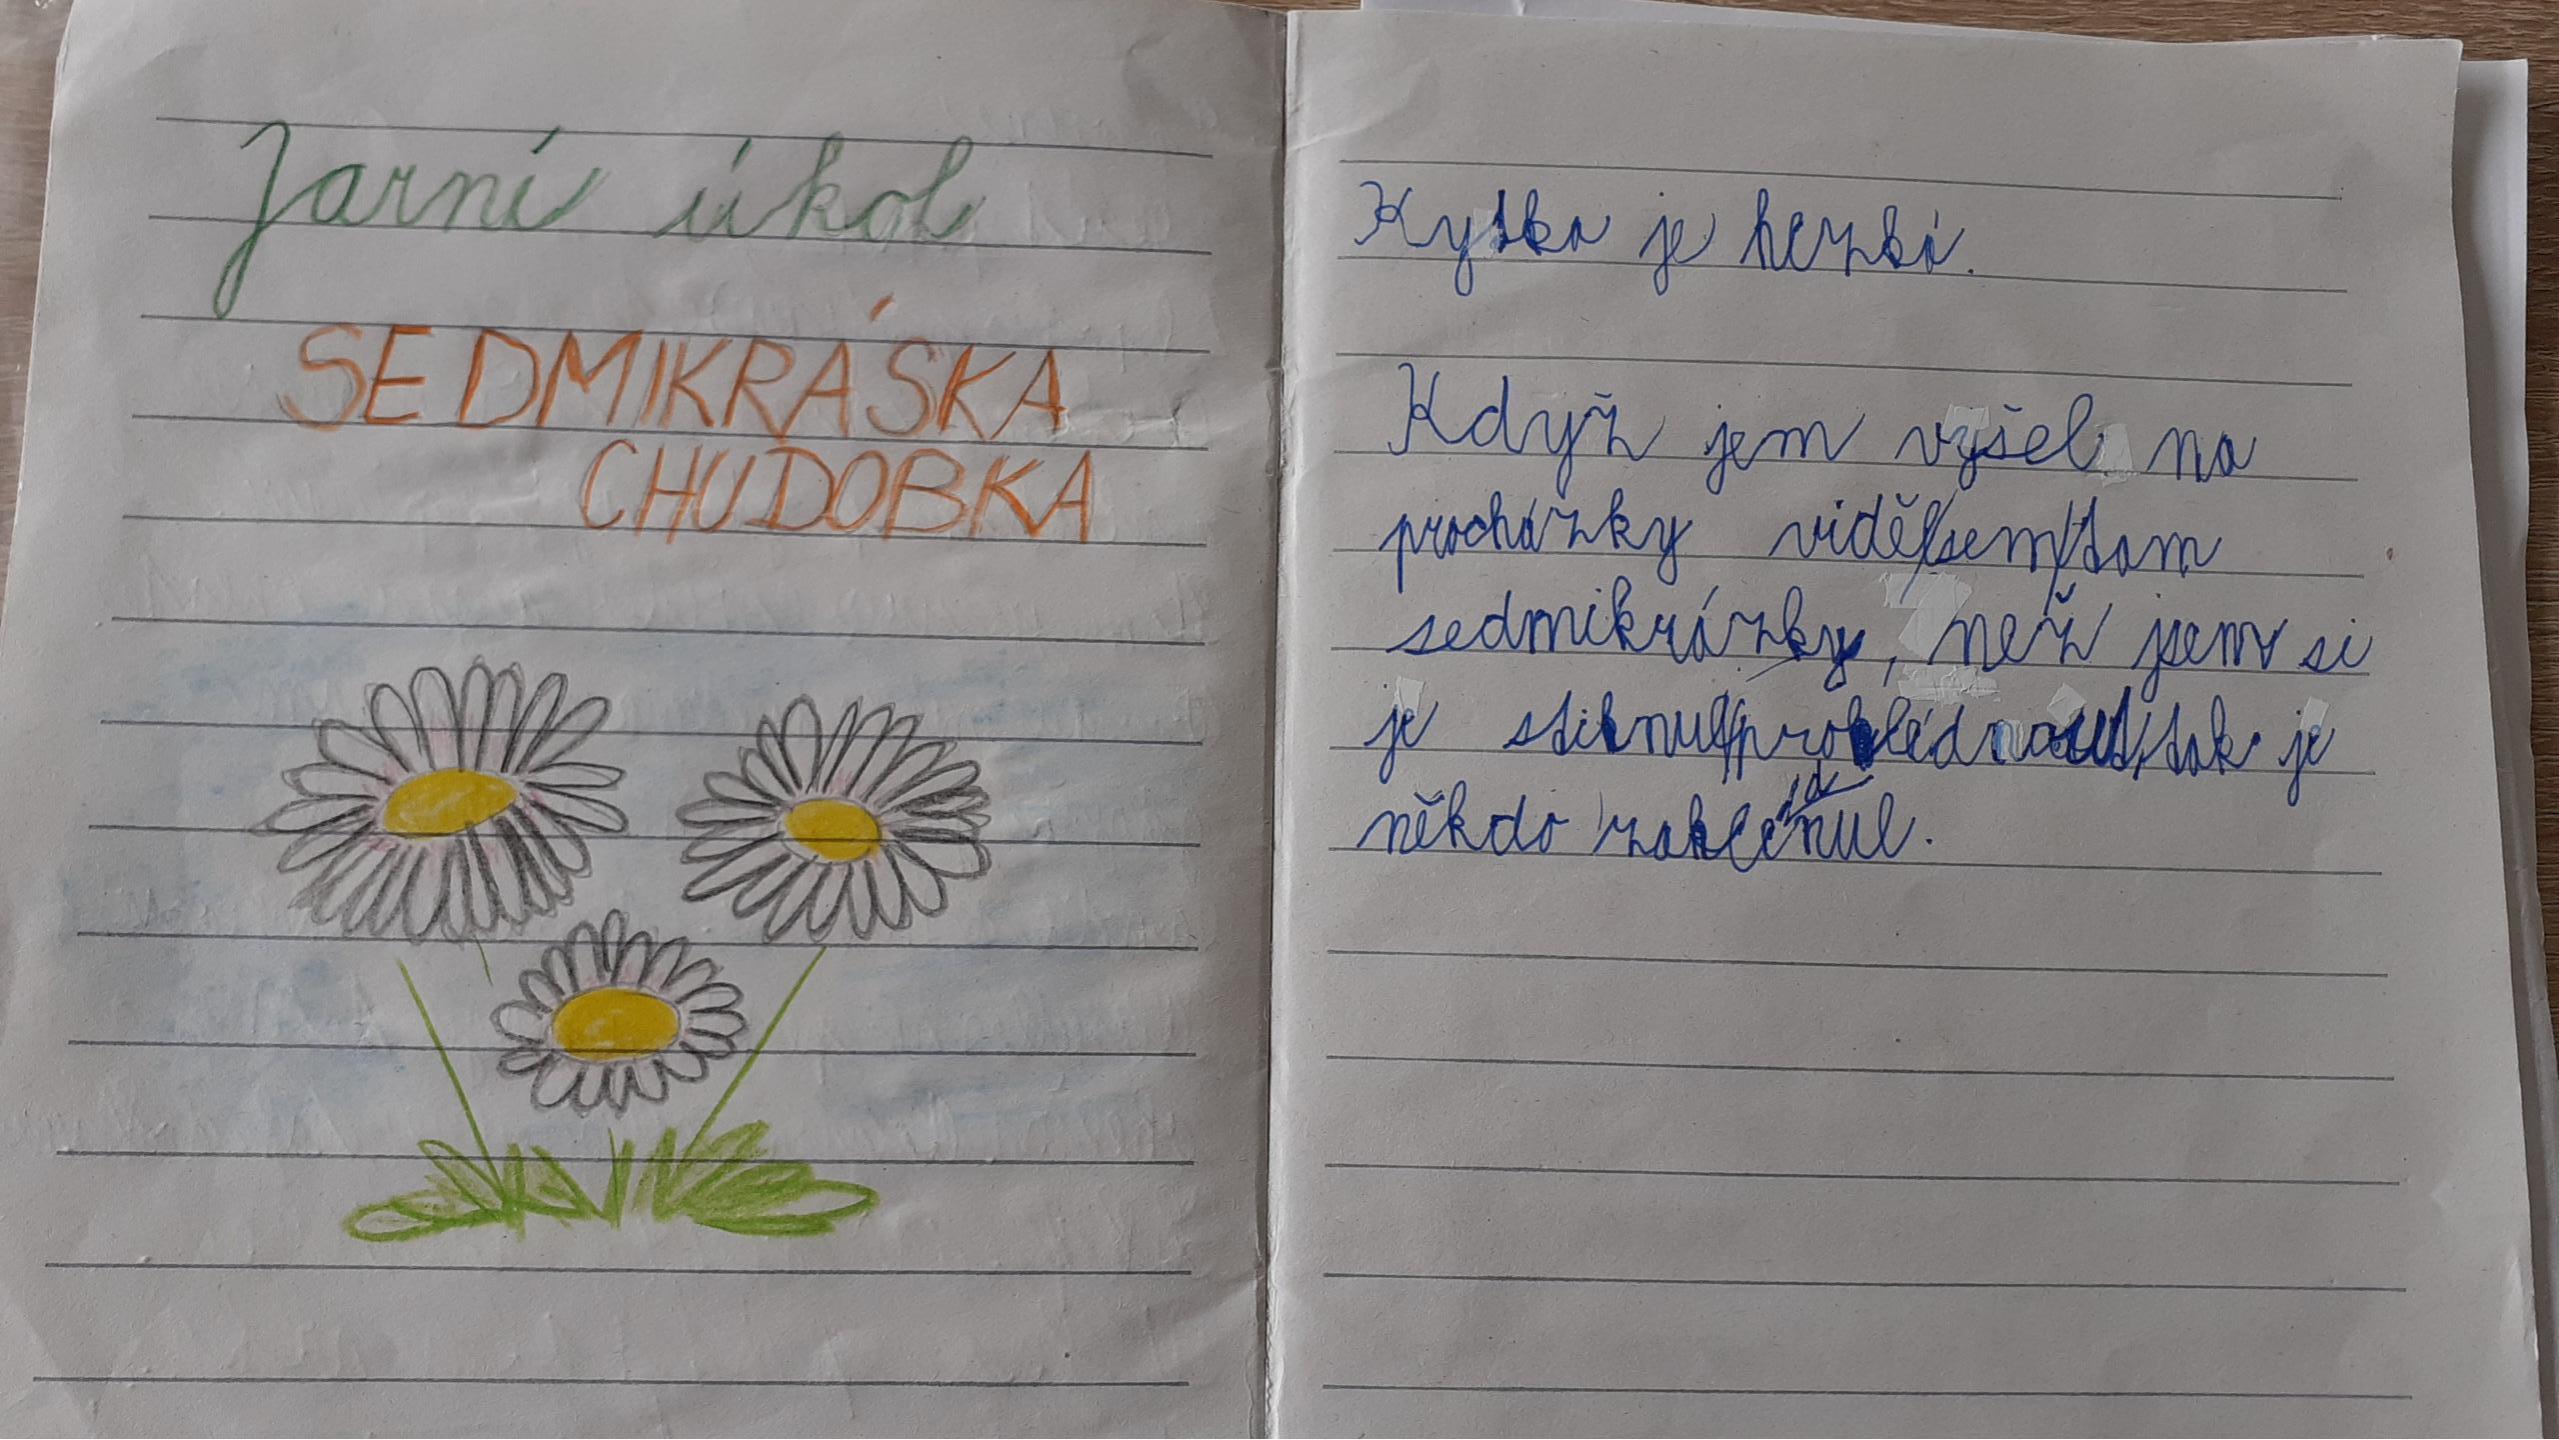 Jarní úkol
SEDMIKRÁSKA
CHUDOBKA
Kytka je hezká.
Když jem vyšel na
procházky viděl/sem/tam
sedmikrázky, než jsem si
je stihnul/prohlédnout/tak je
někdo zahlédnul.